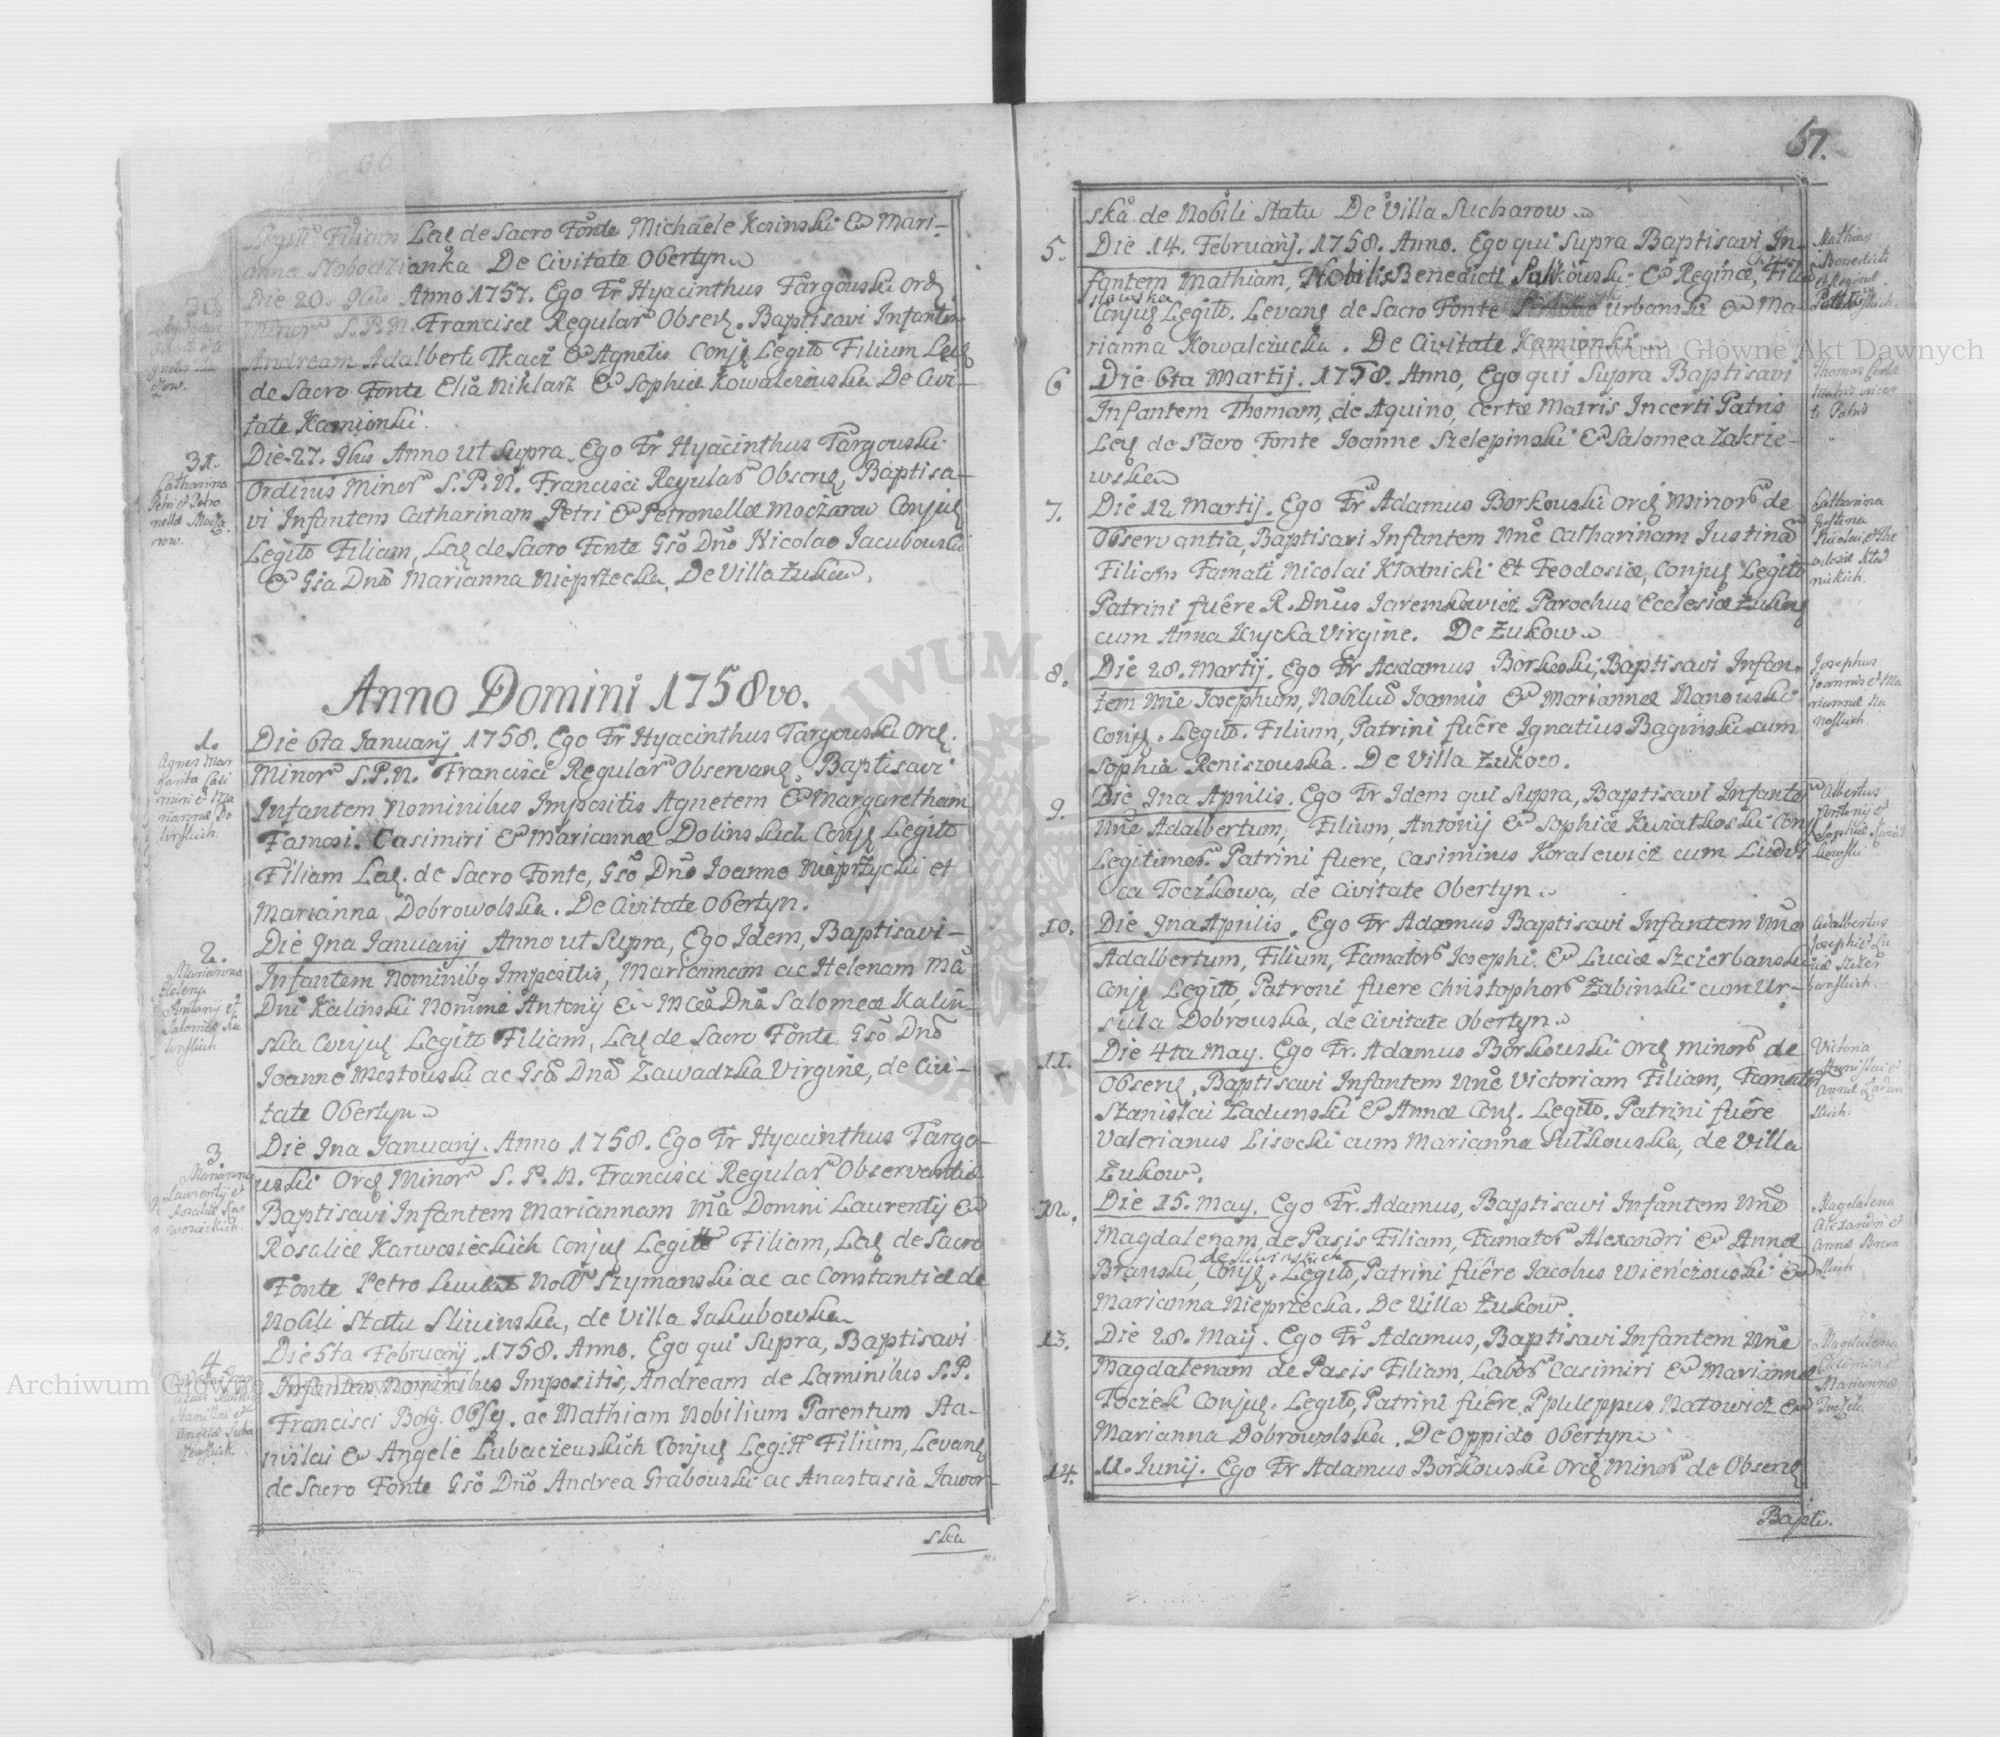 66
Legitt. Filiam Leq de Sacro Fonte Michaele Kosinski & Mari-
anna Słobodzianka De Civitate Obertyn
30.
Die 20. 9bris Anno 1757. Ego Fr Hyacinthus Targouski Ord
Minor S.P.N. Francisci Regular Observ. Baptisavi Infantem
Andream Adalberti Tkacz & Agnetis Conjq Legito Filium Leq
de Sacro Fonte Elia Niklarz & Sophia Kowalczouska De Civi-
tate Kamionki.
31.
Catharina
Petri et Petro
nellæ Mocza
row.
Die 27. 9bris Anno ut Supra Ego Fr Hyacinthus Targouski
Ordinis Minor S.P.N. Francisci Regular Observ, Baptisa-
vi Infantem Catharinam Petri & Petronellæ Moczarow Conjuq
Legito Filiam, Leq de Sacro Fonte Gso Dno Nicolao Jacubouski
& Gsa Dna Marianna Nieprzecka, De Villa Żukow.
Anno Domini 1758vo.
1.
Agnes Mar
garita Casi
miri et Ma
riannæ Do
linskich.
Die 6ta Januarij 1758. Ego Fr Hyacinthus Targouski Ord.
Minor S.P.N. Francisci Regular Observanq. Baptisavi
Infantem Nominibus Impositis Agnetem & Margaretham
Famosi. Casimiri & Mariannæ Dolinskich Conjq Legito
Filiam Leq. de Sacro Fonte, Gso Dno Joanne Nieprzycki et
Marianna Dobrowolska. De Civitate Obertyn.
2.
Marianna
Helena
Antonij et
Salomeæ Ka
linskich
Die 9na Januarij Anno ut Supra, Ego Idem, Baptisavi-
Infantem Nominibq Impositis, Mariannam ac Helenam Mā
Dni Kalinski Nomine Antonij & Mcæ Dnæ Salomeæ Kalin-
ska Conjuq Legito Filiam, Leq de Sacro Fonte Gso Dno
Joanne Mestouski ac Gsa Dna Zawadzka Virgine, de Civi-
tate Obertyn
3
Marianna
Laurentij et
Rosaliæ Kar
wosieckich.
Die 9na Januarij. Anno 1758. Ego Fr Hyacinthus Targo-
uski Ord Minor S.P.N. Francisci Regular Observantiæ
Baptisavi Infantem Mariannam Mā Domni Laurentij &
Rosaliæ Karwosieckich Conjuq Legitto Filiam, Leq de Sacro
Fonte Petro Szymanski ac ac Constantia de
Nobili Statu Sliwinska, de Villa Jakubowka
4
Stanislai et
Angelæ Luba
czewskich.
Die 5ta Februarij. 1758. Anno. Ego qui Supra, Baptisavi
Infantem Nominibus Impositis, Andream de Laminibus S.P.
Francisci Borg. Obsq. ac Mathiam Nobilium Parentum Sta-
nislai & Angele Lubaczeuskich Conjuq Legitt Filium, Levanq
de Sacro Fonte Gso Dno Andrea Grabouski ac Anastasia Jawor-
ska
67.
ska de Nobili Statu De Villa Sucharow
5.
Mathias
Benedicti
et Reginæ
Die 14. Februarij. 1758. Anno. Ego qui Supra Baptisavi In-
fantem Mathiam, Nobilis Benedicti Sulkouski & Reginæ, Filium
Conjuq Legito. Levanq de Sacro Fonte Urbanski & Ma-
rianna Kowalczucka. De Civitate Kamionki
6
Thomas Certæ
Matris incer
ti Patris
Die 6ta Martij. 1758. Anno, Ego qui Supra Baptisavi
Infantem Thomam, de Aquino, Certæ Matris Incerti Patris
Leq de Sacro Fonte Joanne Szelepinski & Salomea Zakrze-
wska
7.
Catharina
Justina
Nicolai et The
odosiæ Kłod
nickich.
Die 12 Martij. Ego Fr Adamus Borkouski Ord Minor de
Observantia, Baptisavi Infantem Nne Catharinam Justina
Filiam Famati Nicolai Kłodnicki Et Feodosiæ, Conjuq Legito
Patrini fuêre R. Dnus Jaremkowicz Parochus Ecclesiæ Żukoq
cum Anna Krycka Virgine. De Żukow
8.
Josephus
Joannis et Ma
riannæ Na
noskich.
Die 28. Martij. Ego Fr Adamus Borkoski, Baptisavi Infan-
tem Nne Josephum, Nobiliu Joannis & Mariannæ Nanouski
Conjq. Legito. Filium, Patrini fuêre Ignatius Baginski cum
Sophia Reniszouska. De Villa Żukow.
9.
Albertus
Antonij et
Sophiæ Kwiat
kowski
Die 9na Aprilis. Ego Fr Idem qui Supra, Baptisavi Infante
Nne Adalbertum, Filium, Antonij & Sophiæ Kwiatkoski Conj
Legitimor. Patrini fuere, Casimirus Koralewicz cum Ludvi
ca Toczkowa, de Civitate Obertyn
10.
Adalbertus
Josephi et Lu
ciæ Szczer
banskich.
Die 9na Aprilis. Ego Fr Adamus Baptisavi Infantem Nne
Adalbertum, Filium, Famator Josephi & Luciæ Szczerbanski
Conjq Legitto, Patroni fuere Christophor Żabinski cum Ur-
sula Dobrouska, de Civitate Obertyn
11.
Victoria
Stanislai et
Annæ Ładun
skich.
Die 4ta May. Ego Fr. Adamus Borkouski Ord Minor de
Observ, Baptisavi Infantem Nne Victoriam Filiam, Famator
Stanislai Ładunski & Annæ Conq. Legito. Patrini fuêre
Valerianus Lisocki cum Marianna Sułkouska, de Villa
Żukow.
12.
Magdalena
Alexandri et
Annæ Bran
skich
Die 15. May. Ego Fr. Adamus, Baptisavi Infantem Nne
Magdalenam de Pasis Filiam, Famator Alexandri & Annæ
Branski, Conjq. Legito, Patrini fuêre Jacobus Wienczouski &
Marianna Nieprzecka. De Villa Żukow.
13.
Magdalena
Casimiri et
Mariannæ
Toczek
Die 28. Maij. Ego Fr Adamus, Baptisavi Infantem Nne
Magdalenam de Pasis Filiam, Labor Casimiri & Mariannæ
Toczek Conjuq. Legito, Patrini fuêre, Pphileppus Natowicz &
Marianna Dobrowolska. De Oppido Obertyn
14.
11. Junij. Ego Fr Adamus Borkouski Ord Minor de Observ
Bapti.
Archiwum Główne Akt Dawnych